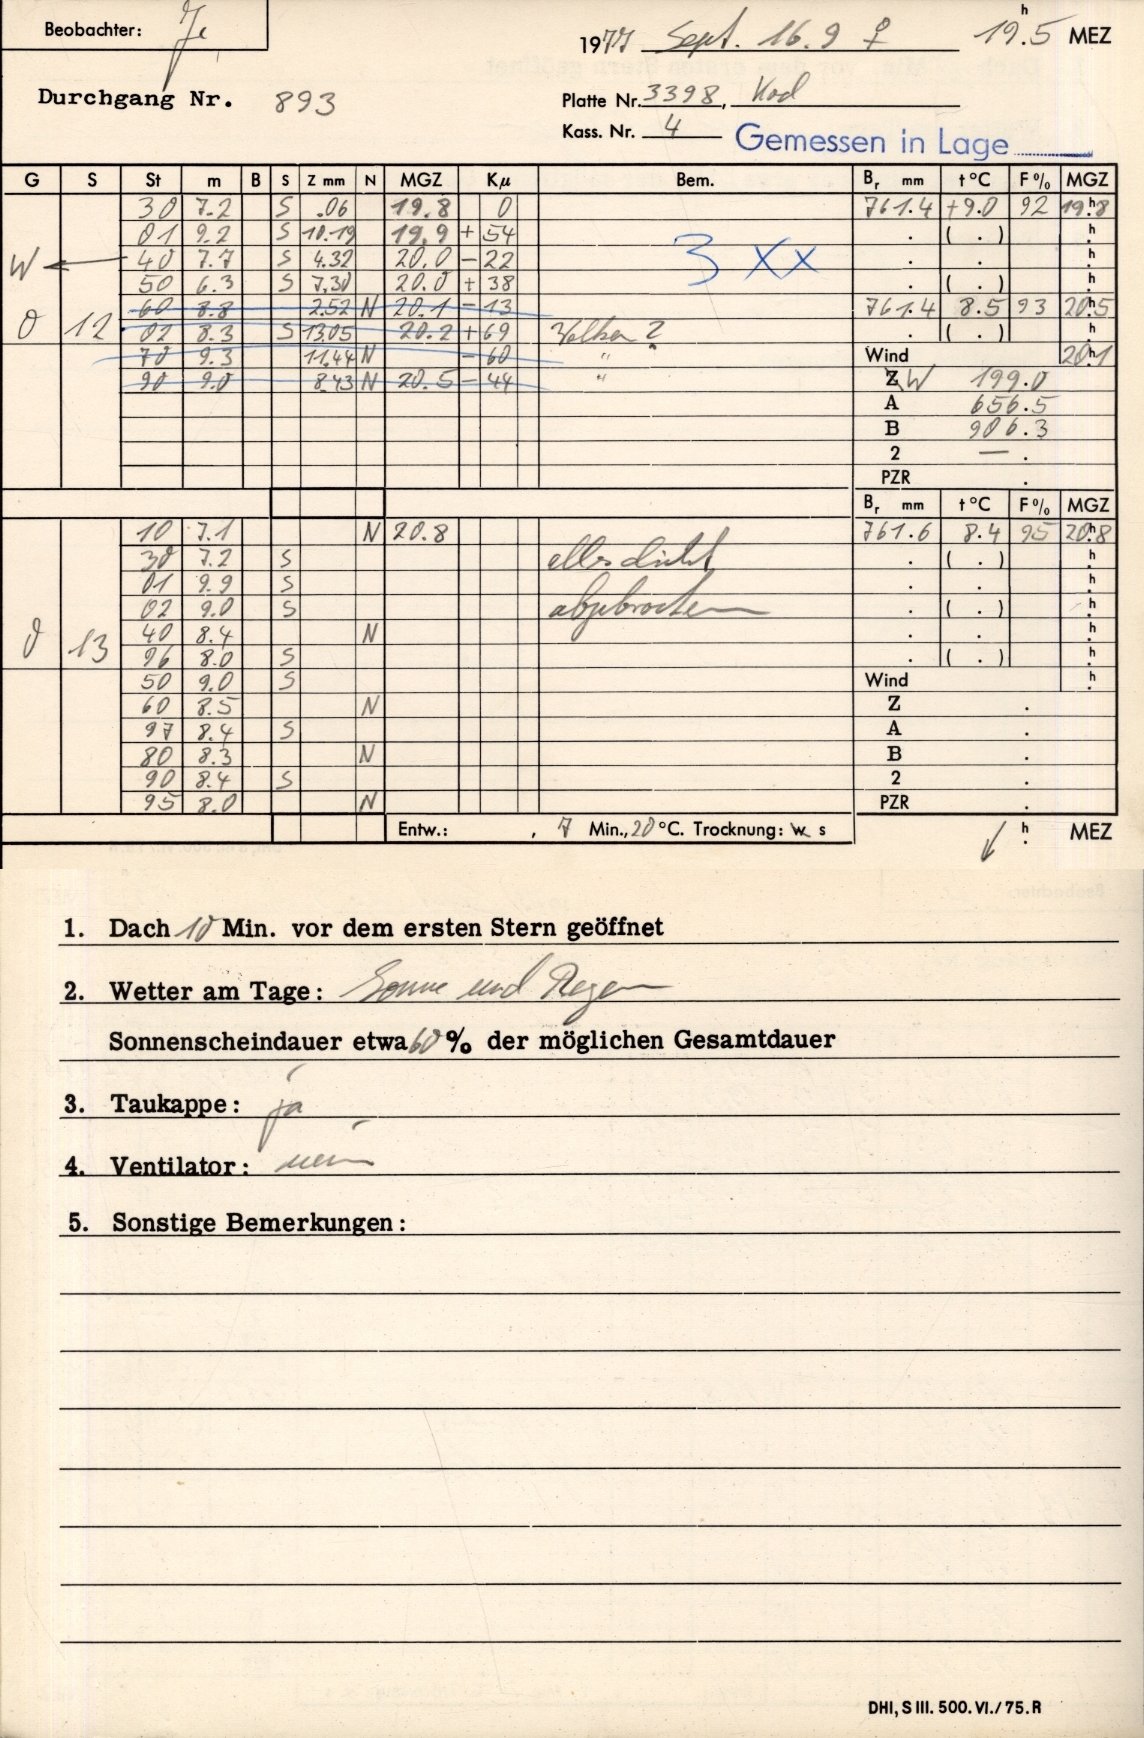 Beobachter: Je
1977 Sept. 16.9 ♀ 19h.5 MEZ
Durchgang Nr. 893
Platte Nr. 3398, Kod
Kass. Nr. 4 Gemessen in Lage
G S St m B S Z mm N MGZ Kμ Bem. Br mm t°C F% MGZ
30 7.2 S .06 19.8 0 761.4 +9.0 92 19h8
01 9.2 S 10.19 19.9 + 54 . ( . ) h
W 40 7.7 S 4.32 20.0 - 22 3 XX . . h
50 6.3 S 7.30 20.0 + 38 . ( . ) h
60 8.8 2.52 N 20.1 - 13 761.4 8.5 93 20h5
0 12 02 8.3 S 13.05 20.2 + 69 Wolken ? . ( . ) h
70 9.3 11.44 N - 60 " Wind 20h1
90 9.0 8.43 N 20.5 - 44 " Z W 199.0
A 656.5
B 906.3
2 — .
PZR .
Br mm t°C F% MGZ
10 7.1 N 20.8 761.6 8.4 95 20h8
30 7.2 S alles dicht . ( . ) h
01 9.9 S . . h
02 9.0 S abgebrochen . ( . ) h
0 13 40 8.4 N . . h
96 8.0 S . ( . ) h
50 9.0 S Wind h
60 8.5 N Z .
97 8.4 S A .
80 8.3 N B .
90 8.4 S 2 .
95 8.0 N PZR .
Entw.: , 7 Min., 20 °C. Trocknung: w s h MEZ
1. Dach 10 Min. vor dem ersten Stern geöffnet
2. Wetter am Tage: Sonne und Regen
Sonnenscheindauer etwa 60 % der möglichen Gesamtdauer
3. Taukappe: ja
4. Ventilator: nein
5. Sonstige Bemerkungen:
DHI, S III. 500. VI./75. R